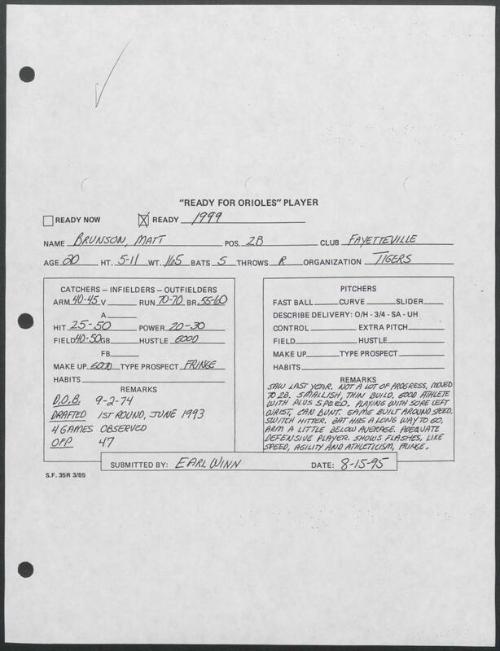 "READY FOR ORIOLES" PLAYER
READY NOW READY 1999
NAME BRUNSON, MATT POS. 2B CLUB FAYETTEVILLE
AGE 20 HT. 5-11 WT. 165 BATS S THROWS R ORGANIZATION TIGERS
CATCHERS – INFIELDERS – OUTFIELDERS
ARM 40-45 V RUN 70-70 BR 55-60
A
HIT 25-50 POWER 20-30
FIELD 40-50 GB HUSTLE GOOD
FB
MAKE UP GOOD TYPE PROSPECT FRINGE
HABITS
REMARKS
D.O.B. 9-2-74
DRAFTED 1ST ROUND, JUNE 1993
4 GAMES OBSERVED
OFP 47
PITCHERS
FAST BALL CURVE SLIDER
DESCRIBE DELIVERY: O/H - 3/4 - SA - UH
CONTROL EXTRA PITCH
FIELD HUSTLE
MAKE UP TYPE PROSPECT
HABITS
REMARKS
SAW LAST YEAR. NOT A LOT OF PROGRESS, MOVED
TO 2B. SMALLISH, THIN BUILD, GOOD ATHLETE
WITH PLUS SPEED. PLAYING WITH SORE LEFT
WRIST, CAN BUNT. GAME BUILT AROUND SPEED.
SWITCH HITTER. BAT HAS A LONG WAY TO GO,
ARM A LITTLE BELOW AVERAGE. ADEQUATE
DEFENSIVE PLAYER. SHOWS FLASHES, LIKE
SPEED, AGILITY AND ATHLETICISM, FRINGE.
SUBMITTED BY: EARL WINN DATE: 8-15-95
S.F. 35R 3/85